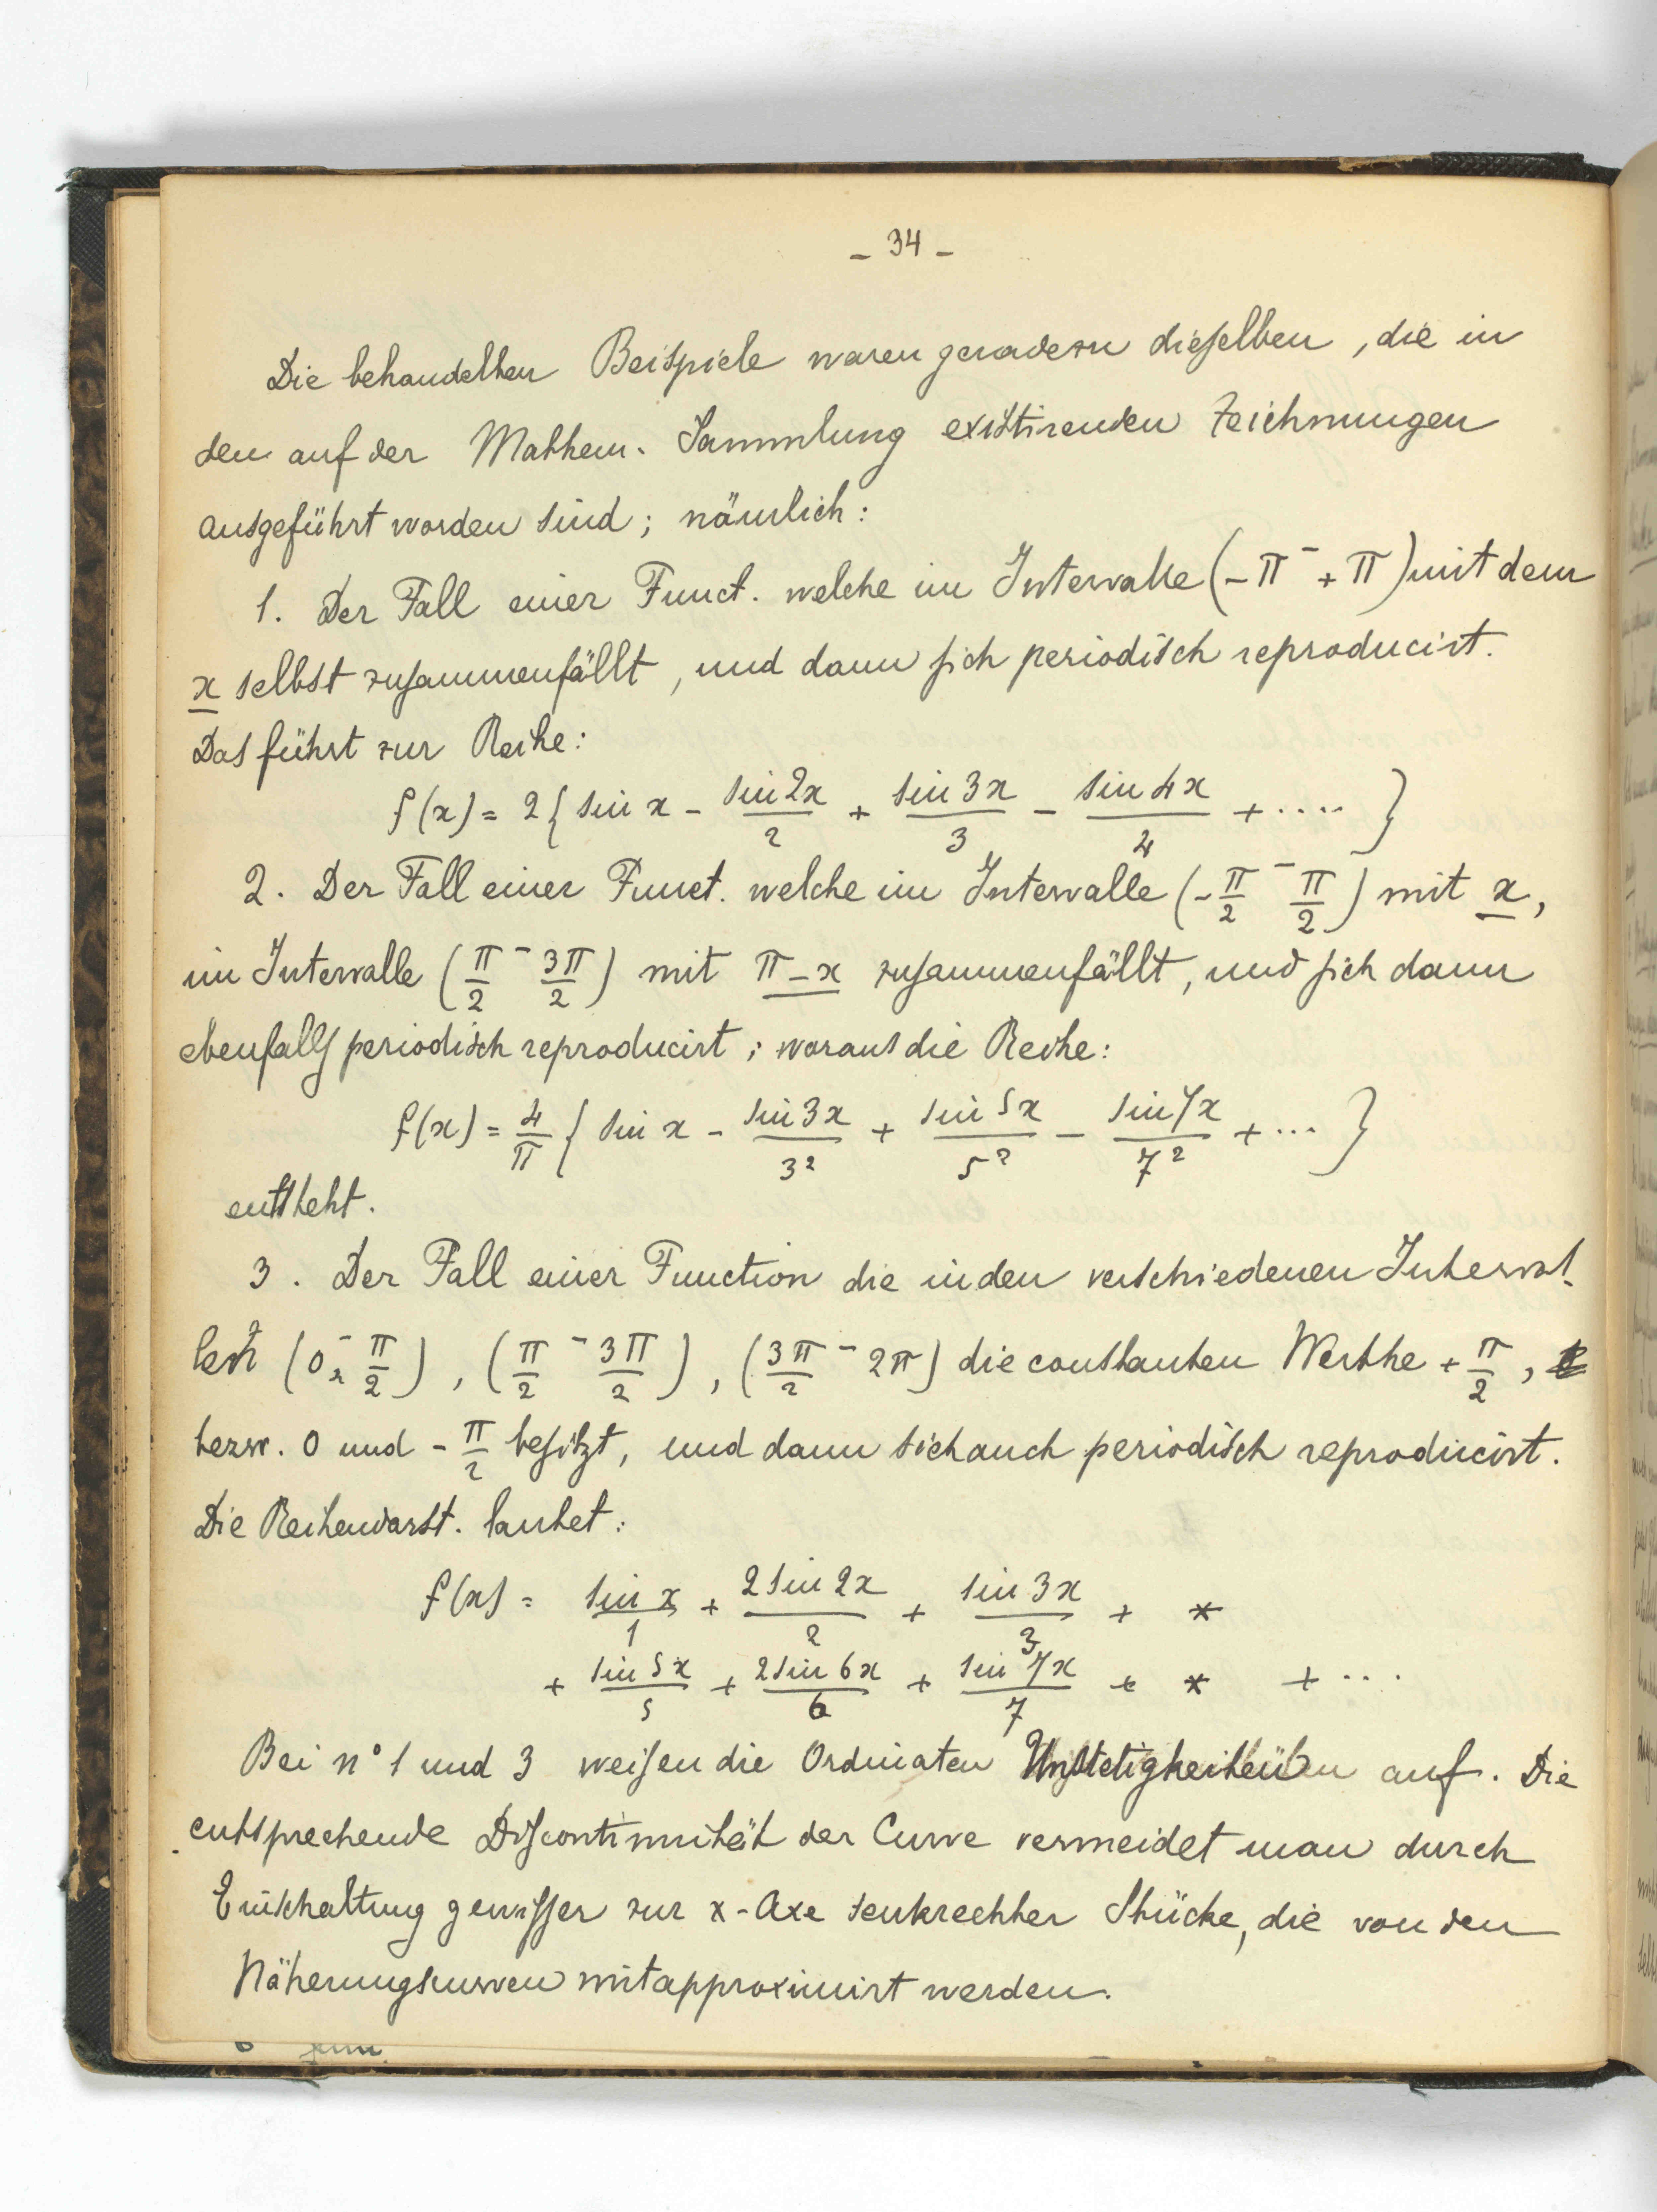 – 34 –
Die behandelten Beispiele waren geradezu dieselben, die in
den auf der Mathem. Sammlung existirenden Zeichnungen
ausgeführt worden sind; nämlich:
1. Der Fall einer Funct. welche im Intervalle (-π – +π) mit dem
x selbst zusammenfällt, und dann sich periodisch reproducirt.
Das führt zur Reihe:
f(x) = 2 { sin x - sin 2x/2 + sin 3x/3 - sin 4x/4 + ···· }
2. Der Fall einer Funct. welche im Intervalle (-π/2 – π/2) mit x,
im Intervalle (π/2 – 3π/2) mit π-x zusammenfällt, und sich dann
ebenfalls periodisch reproducirt; woraus die Reihe:
f(x) = 4/π { sin x - sin 3x/3² + sin 5x/5² - sin 7x/7² + ··· }
entsteht.
3. Der Fall einer Function die in den verschiedenen Interval-
len (0 – π/2), (π/2 – 3π/2), (3π/2 – 2π) die constanten Werthe + π/2,
bezw. 0 und - π/2 besitzt, und dann sich auch periodisch reproducirt.
Die Reihendarst. lautet:
f(x) = sin x/1 + 2 sin 2x/2 + sin 3x/3 + *
+ sin 5x/5 + 2 sin 6x/6 + sin 7x/7 + * + ····
Bei n° 1 und 3 weisen die Ordinaten auf. Die
entsprechende Discontinuität der Curve vermeidet man durch
Einschaltung gewisser zur x-Axe senkrechter Stücke, die von den
Näherungscurven mitapproximirt werden.